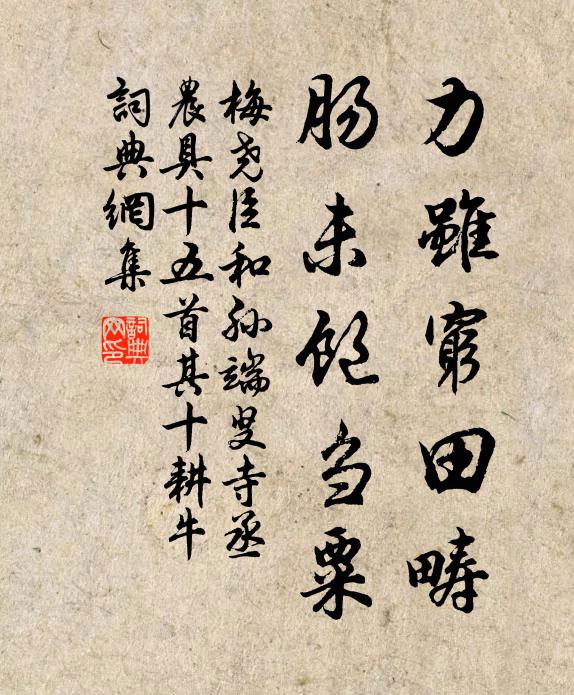 力雖窮田疇
肠未饱刍粟
梅尧臣和孙端叟寺丞
農具十五首其十耕牛
詞典網集
詞典网印